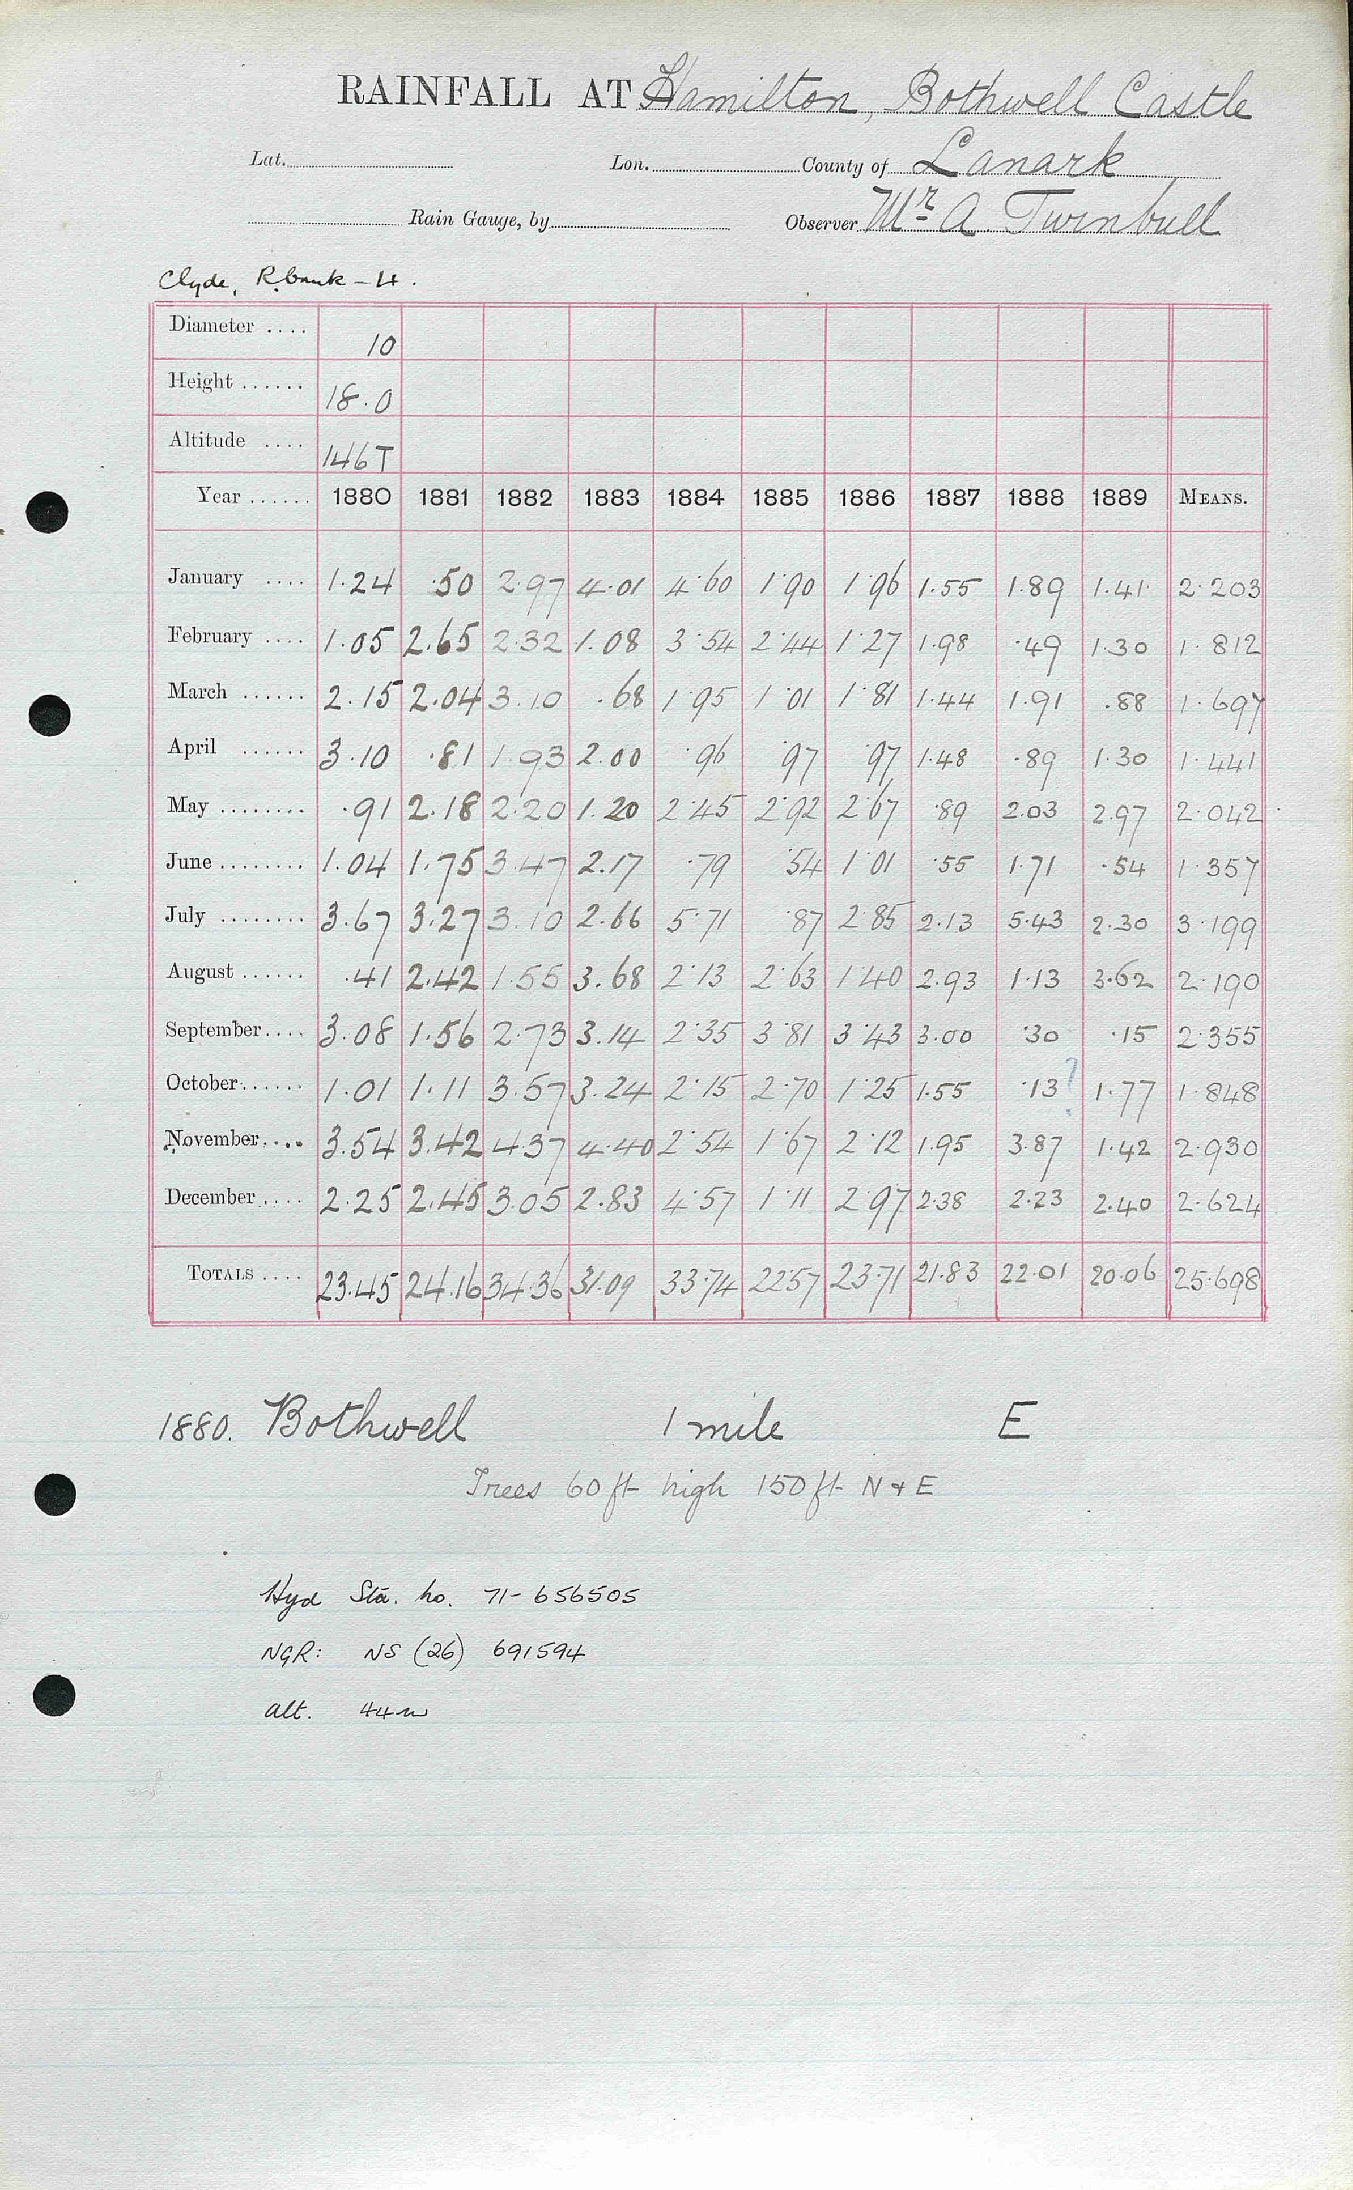 RAINFALL AT Hamilton, Bothwell Castle
Lat. Lon. County of Lanark
Rain Gauge, by Observer Mr A. Turnbull
Clyde, R. bank - 4.
Diameter .... 10
Height ...... 18.0
Altitude .... 146T
Year ...... 1880 1881 1882 1883 1884 1885 1886 1887 1888 1889 MEANS.
January .... 1.24 .50 2.97 4.01 4.60 1.90 1.96 1.55 1.89 1.41 2.203
February .... 1.05 2.65 2.32 1.08 3.54 2.44 1.27 1.98 .49 1.30 1.812
March ...... 2.15 2.04 3.10 .68 1.95 1.01 1.81 1.44 1.91 .88 1.697
April ...... 3.10 .81 1.93 2.00 .96 .97 .97 1.48 .89 1.30 1.441
May ........ .91 2.18 2.20 1.20 2.45 2.92 2.67 .89 2.03 2.97 2.042
June ........ 1.04 1.75 3.47 2.17 .79 .54 1.01 .55 1.71 .54 1.357
July ........ 3.67 3.27 3.10 2.66 5.71 .87 2.85 2.13 5.43 2.30 3.199
August ...... .41 2.42 1.55 3.68 2.13 2.63 1.40 2.93 1.13 3.62 2.190
September .... 3.08 1.56 2.73 3.14 2.35 3.81 3.43 3.00 .30 .15 2.355
October ...... 1.01 1.11 3.57 3.24 2.15 2.70 1.25 1.55 .13? 1.77 1.848
November .... 3.54 3.42 4.37 4.40 2.54 1.67 2.12 1.95 3.87 1.42 2.930
December .... 2.25 2.45 3.05 2.83 4.57 1.11 2.97 2.38 2.23 2.40 2.624
TOTALS .... 23.45 24.16 34.36 31.09 33.74 22.57 23.71 21.83 22.01 20.06 25.698
1880. Bothwell 1 mile E
Trees 60 ft high 150 ft N & E
Hyd Sta. no. 71-656505
NGR: NS (26) 691594
alt. 44m